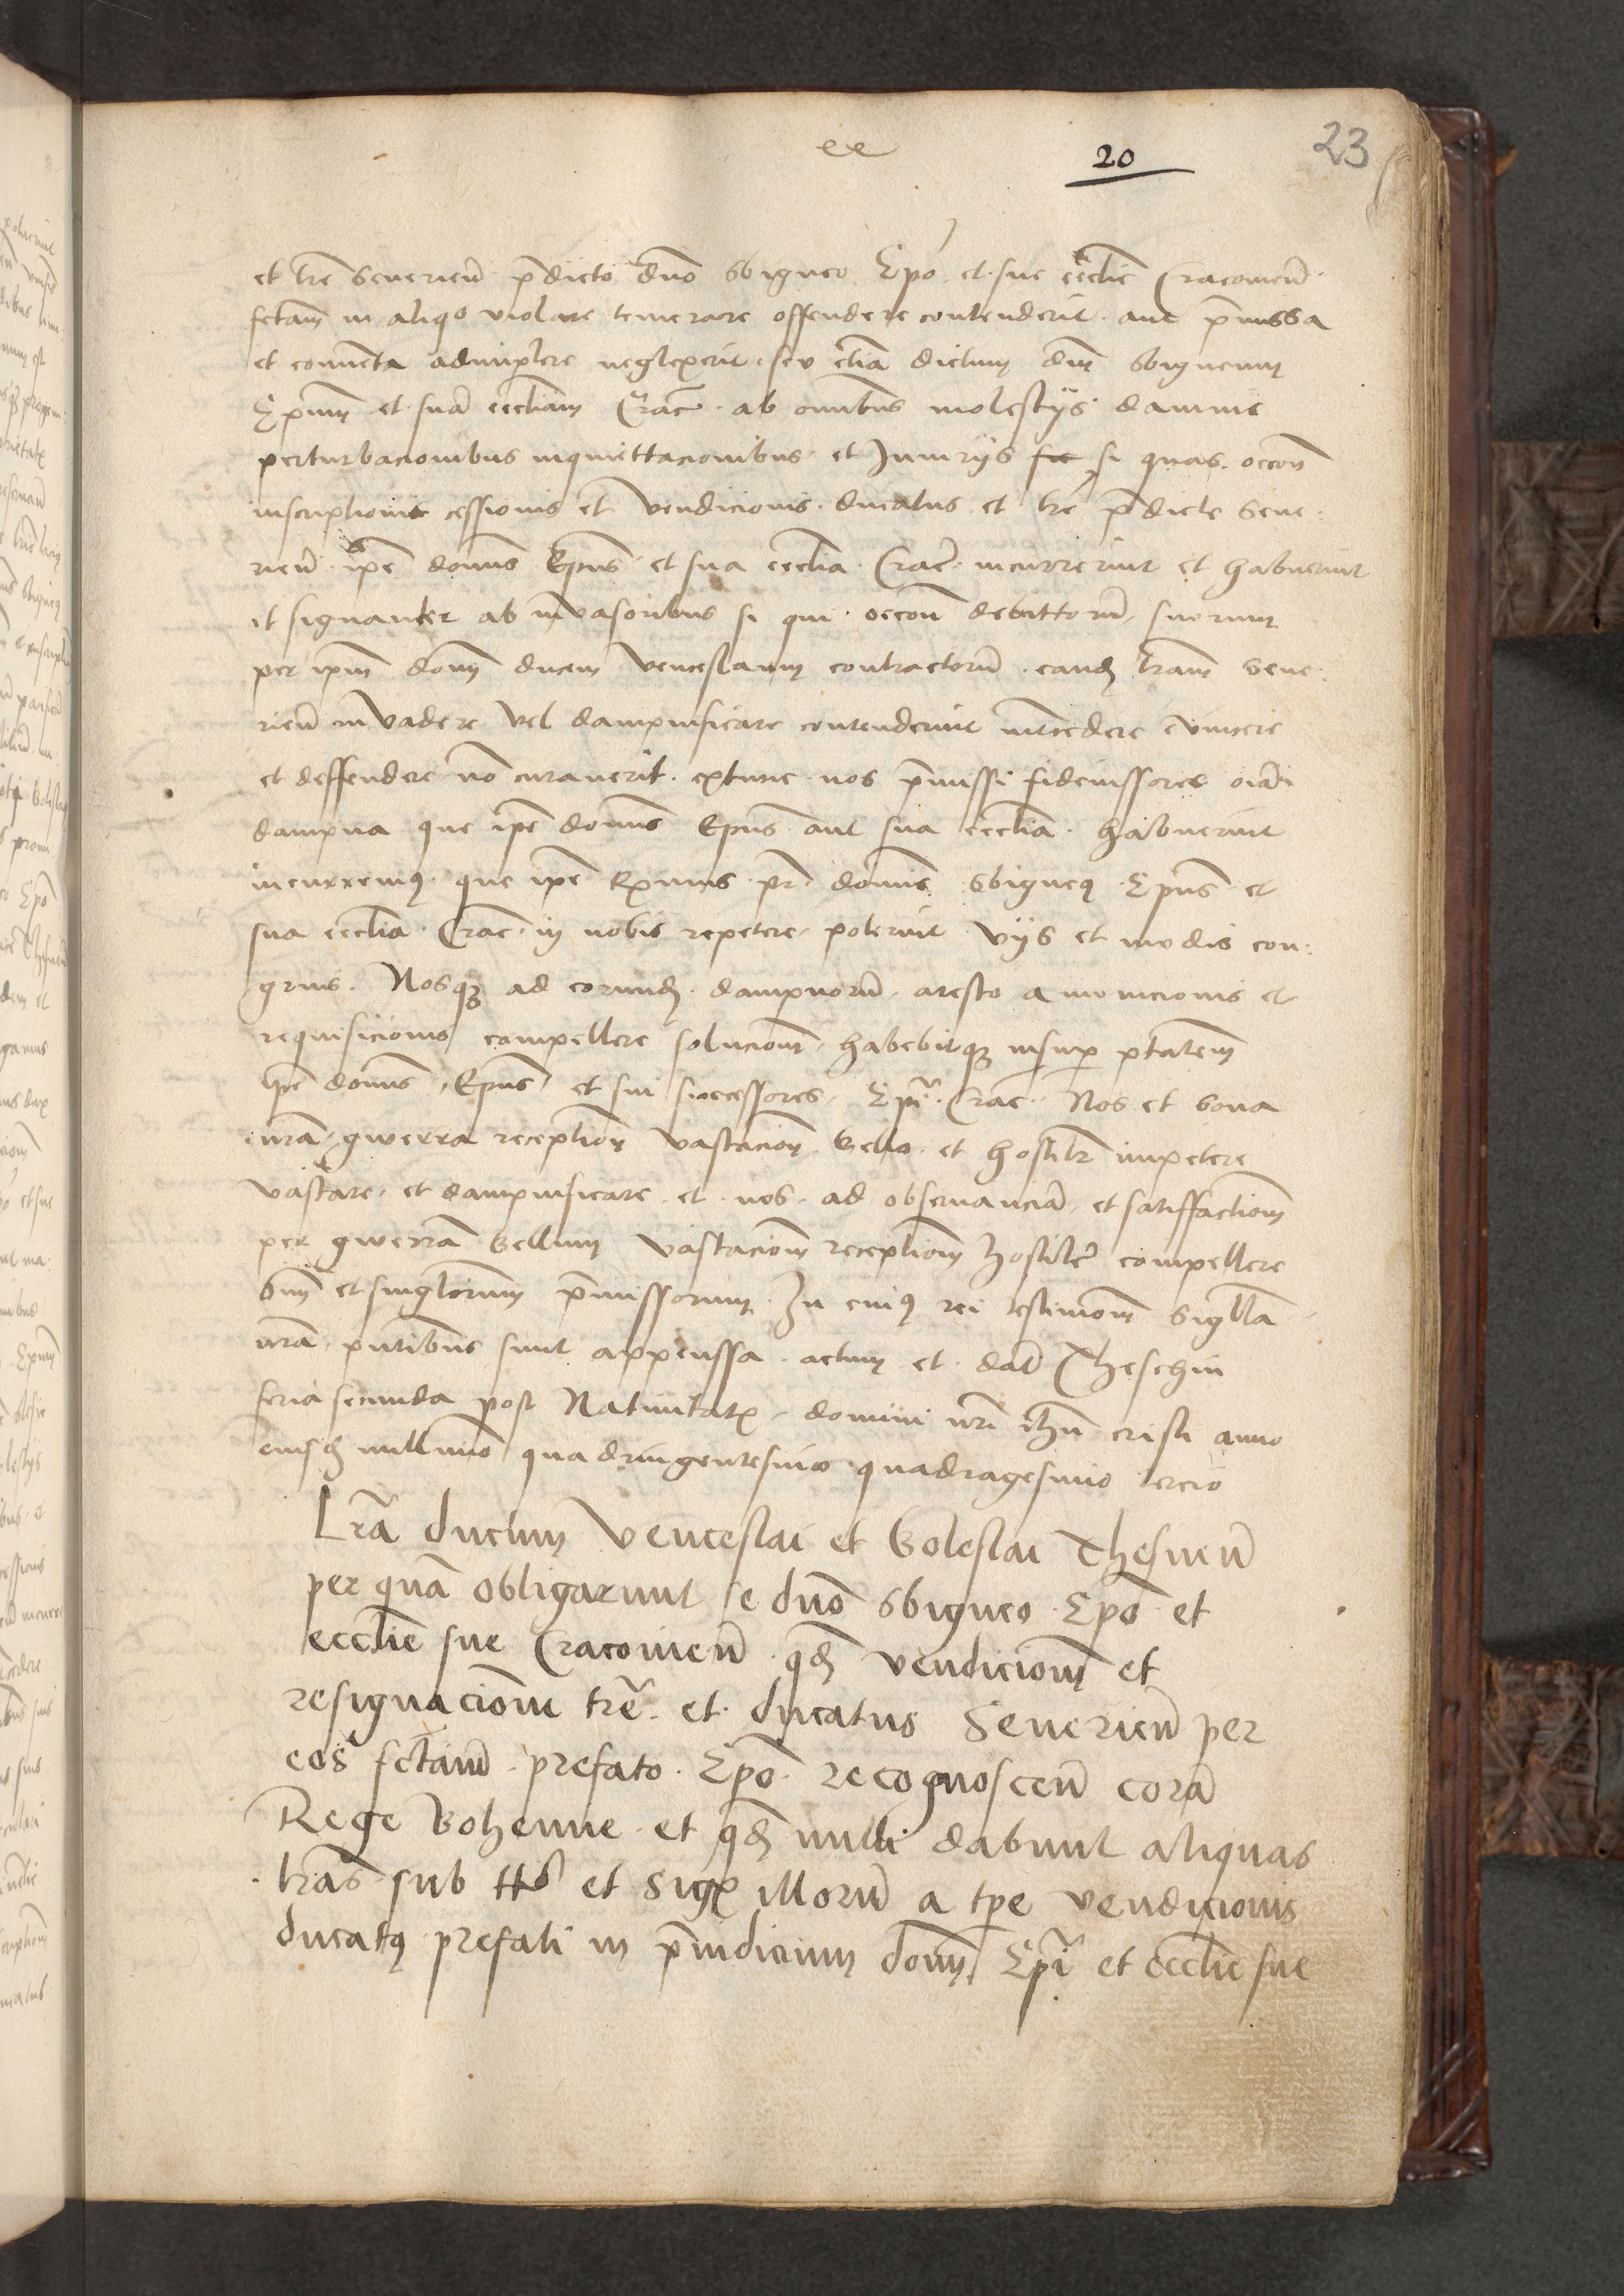 ee
20
23
et tre̅ Severien̅ p̅dicto dn̅o Sbigneo Ep̅o et sue eccl̅ie Cracovien̅
fctam̅ in aliqo violare temerare offendere contenderit aut p̅missa
et conventa adimplere neglexerit seu eciā dictum dn̅m Sbigneum
Ep̅um et suā eccl̅iam Crac̅ ab omnibus molestijs dampnis
perturbacionibus inquiettacionibus et Iniurijs si quas occōn
inscriptionis cessionis et vendicionis ducatus et tre̅ p̅dicte Seve
rien̅ ip̅e domn̅s Ep̅us et sua eccl̅ia Crac̅ incurrerint et habuerint
et signanter ab invasoribus si qui occōn debittorū suorum
per ip̅m domn̅ ducem Venceslaum contractorū eandem tr̅am Seve
rien̅ invadere vel dampnificare contenderint int̅cedere evincere
et deffendere nō curaverit extunc nos p̅missi fideiussores om̅ia
dampna que ip̅e domn̅s Ep̅us aut sua eccl̅ia habuerint
incurremus que ip̅e Rx̅mus pr̅ domn̅s Sbigneus Ep̅us et
sua eccl̅ia Crac̅ in nobis repetere poterint vijs et modis con
gruis Nosq̨ ad eorundem dampnorū aresto amonicionis et
requisicionis compellere solucionē habebitq̨ insup̅ p̅tatem
ip̅e domn̅s Ep̅us et sui successores Ep̅i Crac̅ Nos et bona
nr̅a gwerra recepcion̅ vastacion̅ bello et hostilr̅ impetere
vastare et dampnificare et nos ad observanciā et satiffactionē
per gwerrā bellum vastacionē receptionē hostilit̅ compellere
om̅m et singl̅orum p̅missorum In cuius rei testimon̅m sigilla
nr̅a pn̅tibus sunt appenssa actum et dat̅ Theschin
feria secunda post Nativitatem domini nr̅i ih̅u cristi anno
eiusdem millimo quadringentesimo quadragesimo tercio
Lr̅a ducum Venceslai et Boleslai Thesnen̅
per quā obligarunt se dn̅o Sbigneo Ep̅o et
eccl̅ie sue Cracovien̅ qd̅ vendicionē et
resignacionem tr̅e et ducatus Severien̅ per
eos fctam̅ prefato Ep̅o recognoscen̅ corā
Rege Bohemie et qd̅ nulli dabunt aliquas
lr̅as sub tt̅ et sig illorū a tp̅e vendicionis
ducatus prefati in p̅iudicium domn̅ Ep̅i et eccl̅ie sue